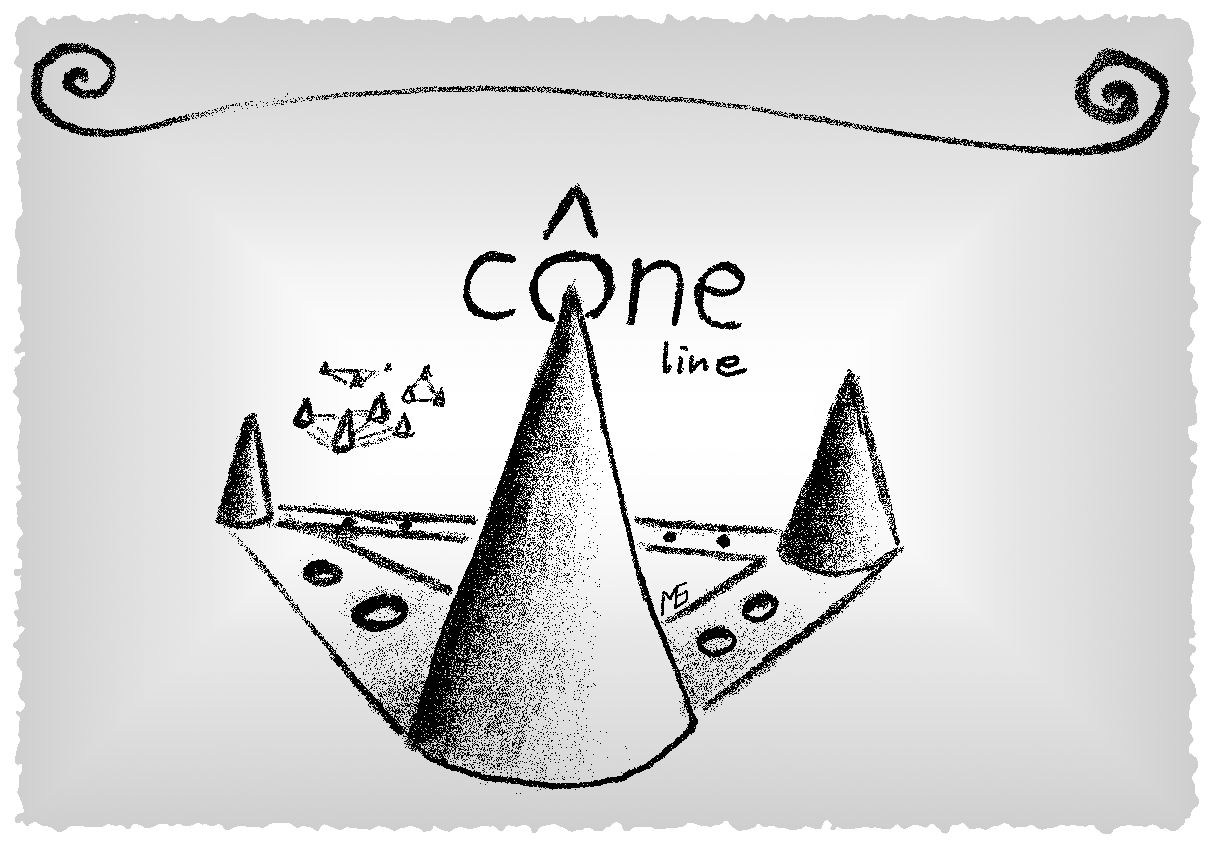 cône
line
MG